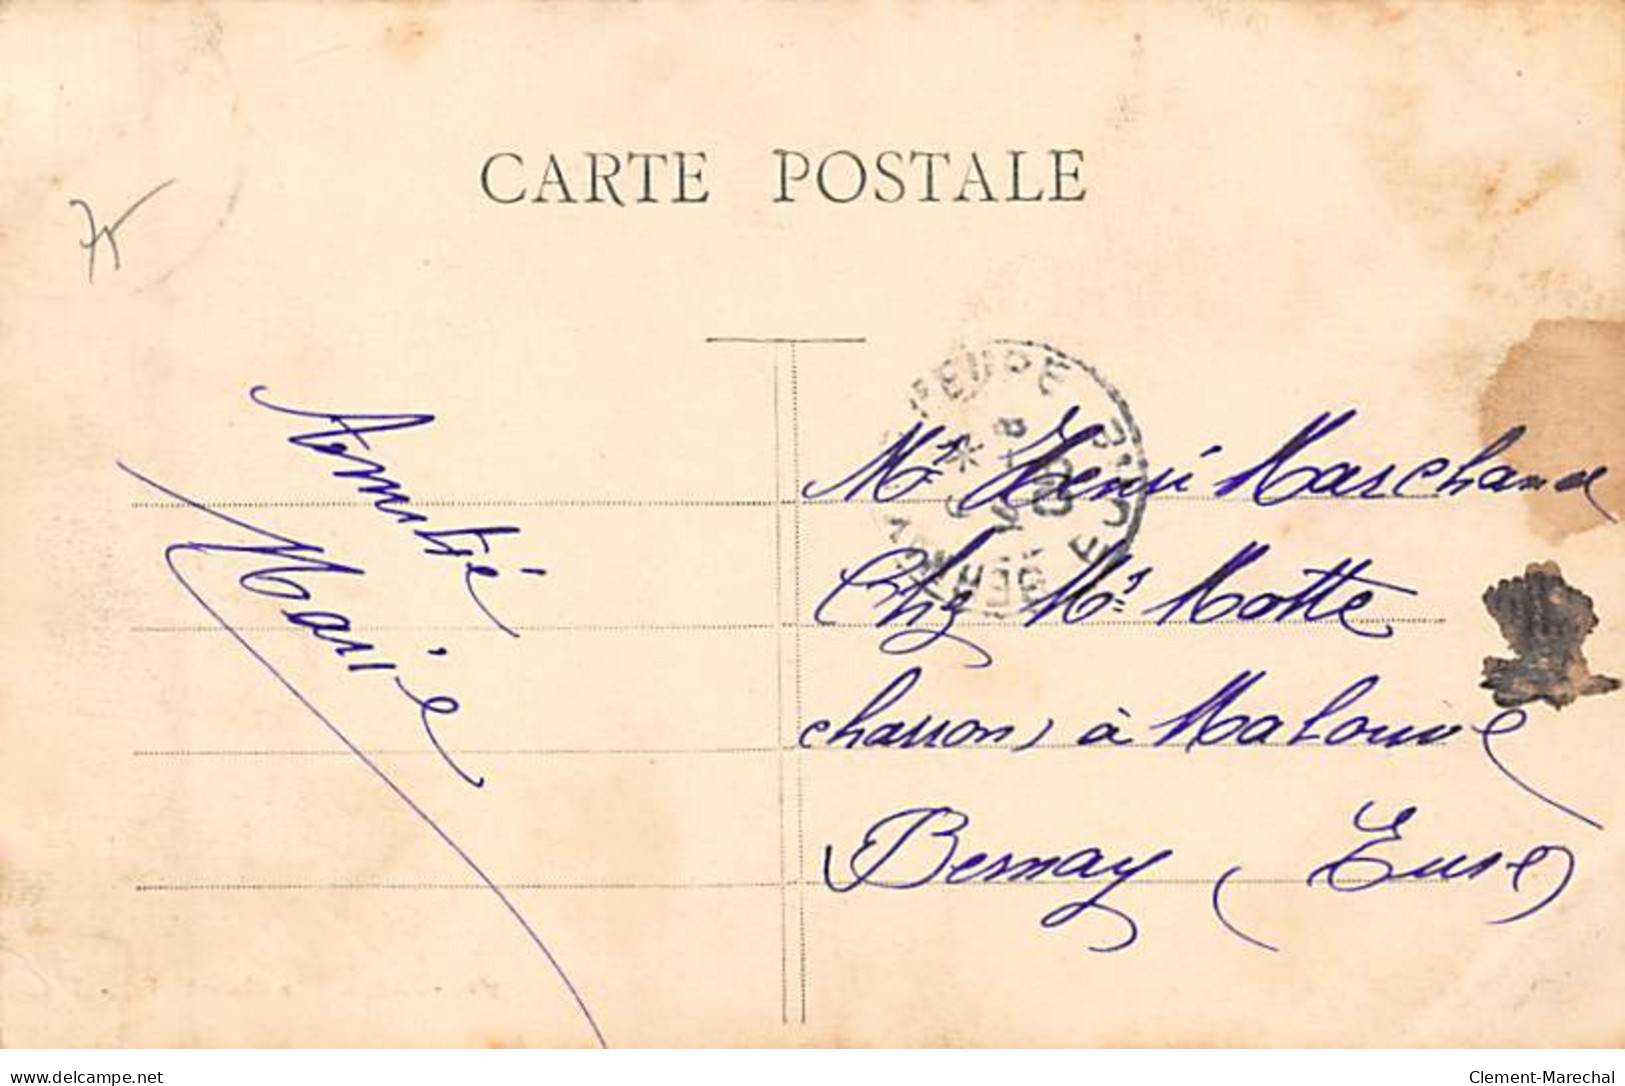 CARTE POSTALE
75
Amitié
Marie
Mr Henri Marchand
Chez Mr Motte
charron, à Malouve
Bernay (Eure)
www.delcampe.net
Clement-Marechal